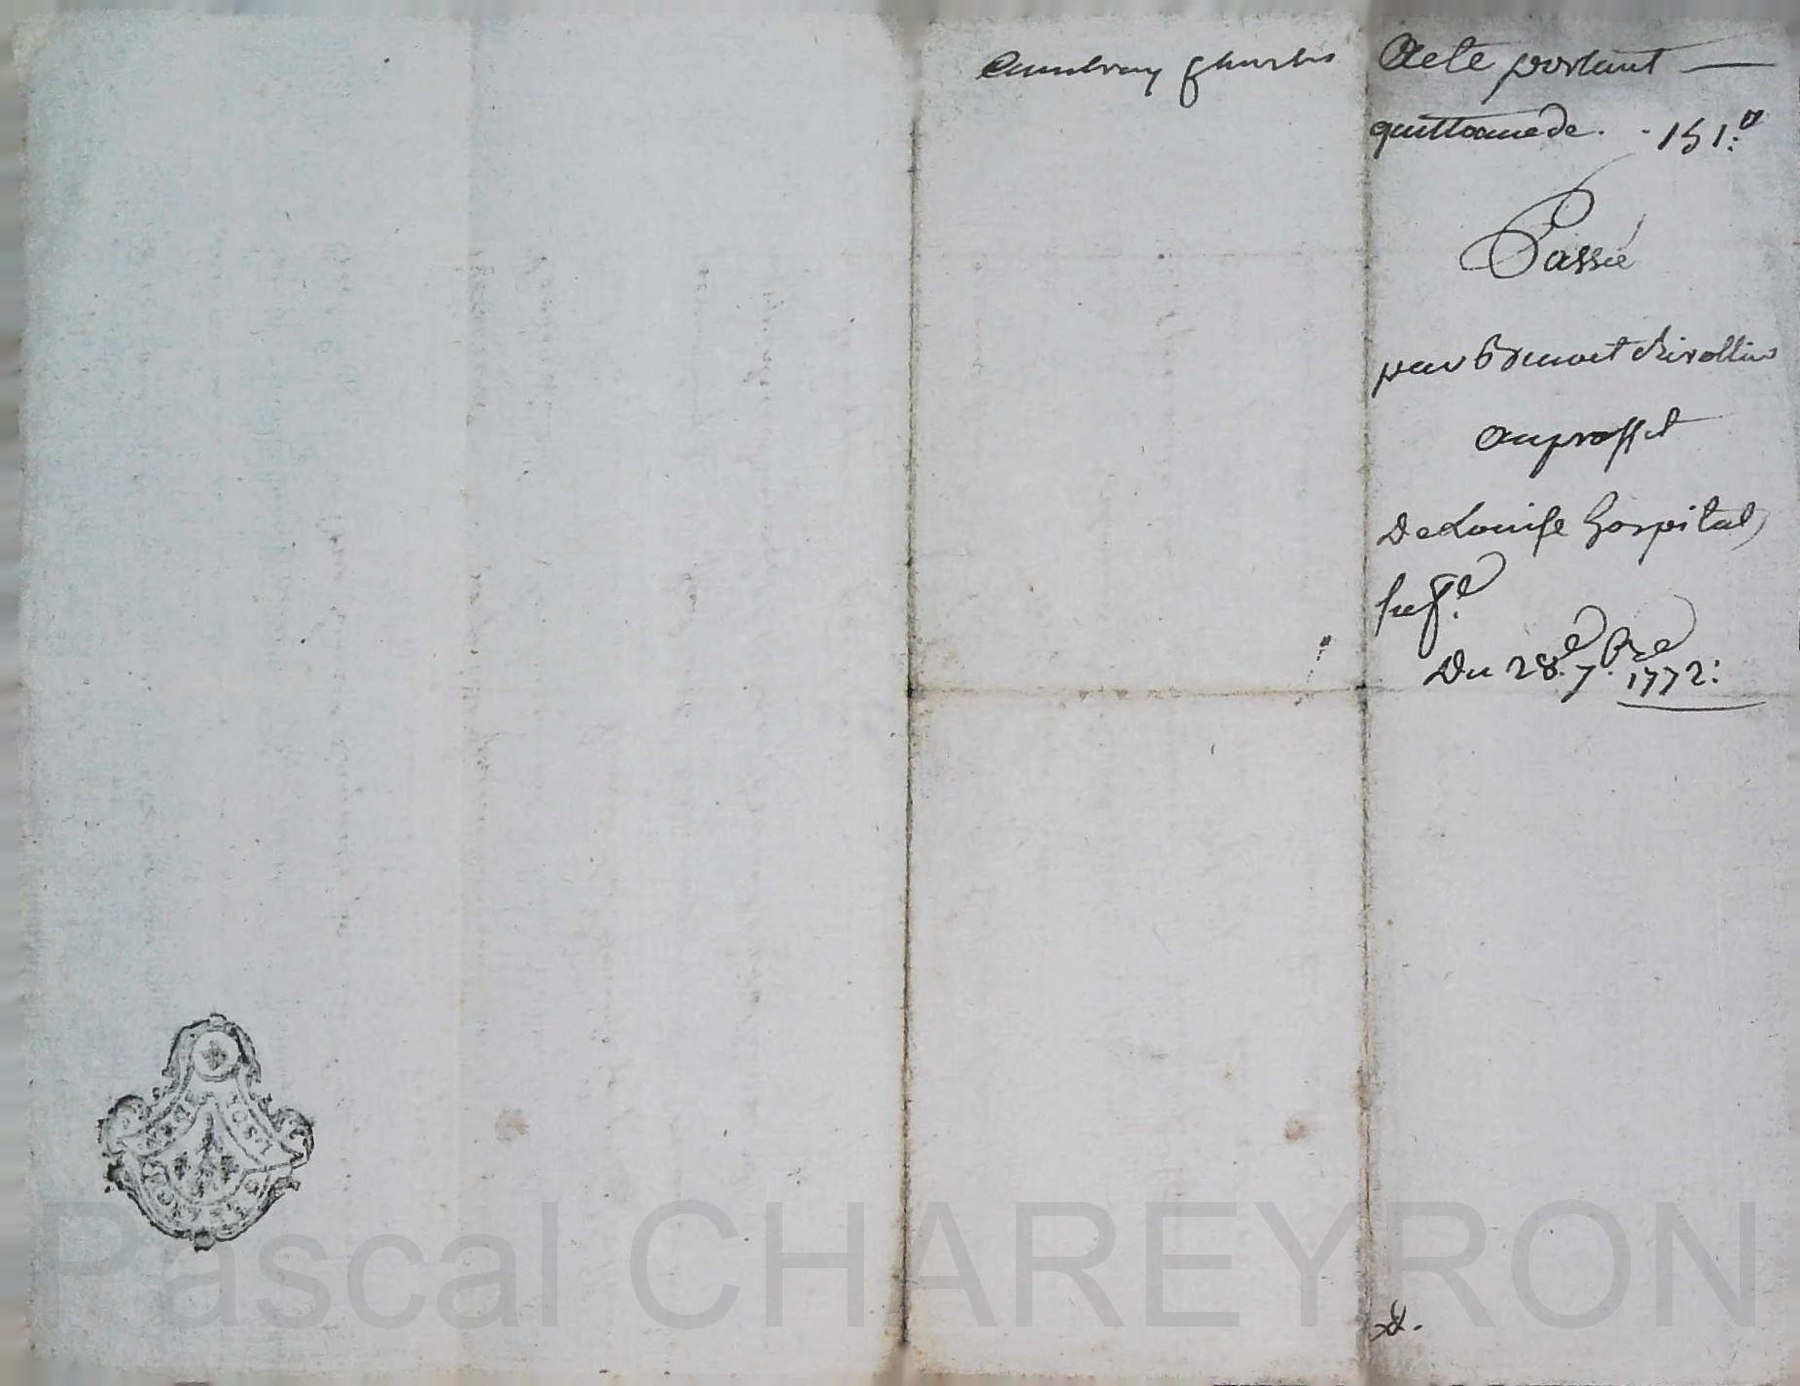 Acte portant
quittance de 151:
Passé
par Benoit Chirollin
au proffit
De Louise hospital
sa f.e
Du 28.e 7.bre 1772:
Pascal CHAREYRON